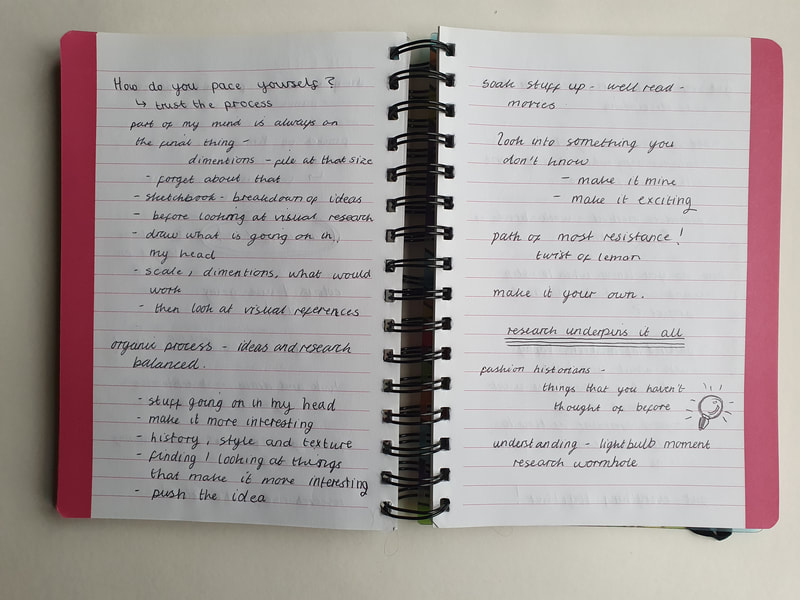 How do you pace yourself?
↳ trust the process
part of my mind is always on
the final thing -
dimentions - file at that size
- forget about that
- sketchbook - breakdown of ideas
- before looking at visual research
- draw what is going on in
my head
- scale, dimentions, what would
work
- then look at visual references
organic process - ideas and research
balanced.
- stuff going on in my head
- make it more interesting
- history, style and texture
- finding / looking at things
that make it more interesting
- push the idea
soak stuff up - well read -
movies
look into something you
don't know
- make it mine
- make it exciting
path of most resistance!
twist of lemon
make it your own.
research underpins it all
fashion historians -
things that you haven't
thought of before
understanding - lightbulb moment
research wormhole